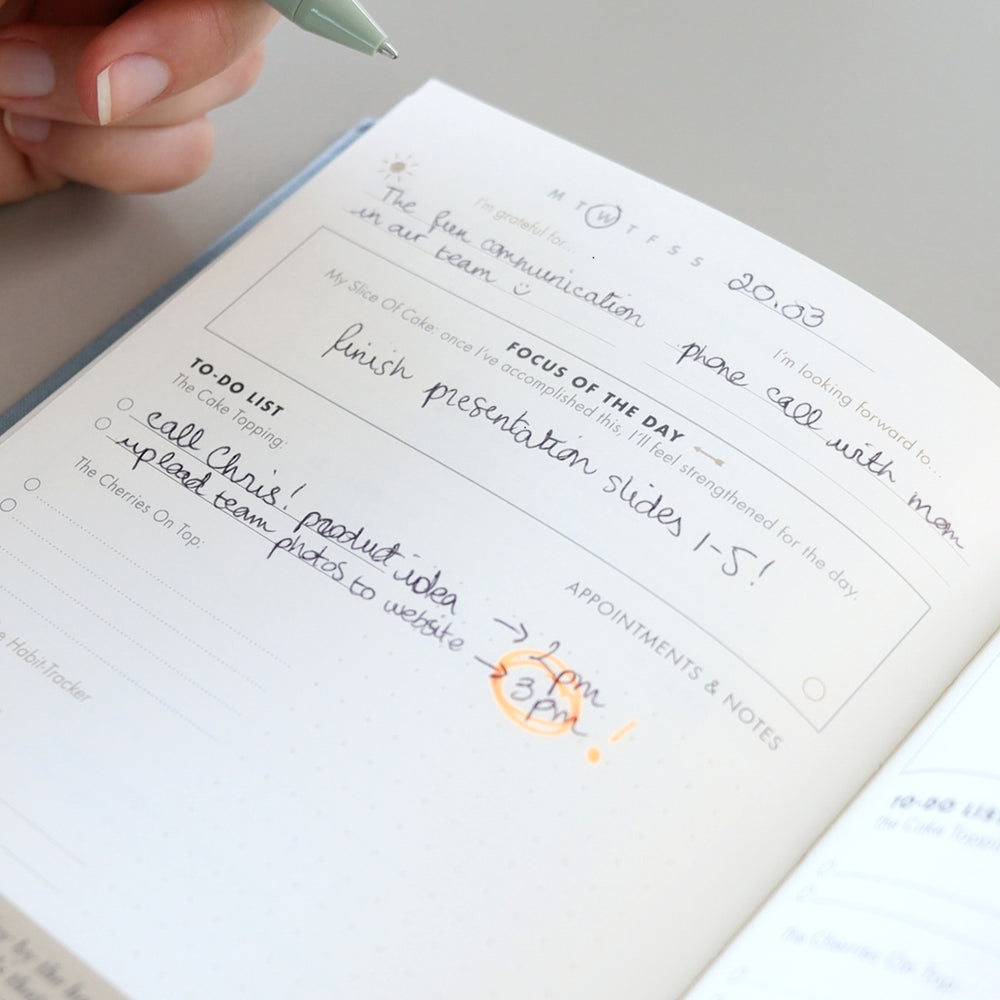 M T W T F S S
20.03
I'm grateful for...
The fun communication
in our team
I'm looking forward to...
phone call with mom
FOCUS OF THE DAY
My Slice Of Cake: once I've accomplished this, I'll feel strengthened for the day.
finish presentation slides 1-5!
TO-DO LIST
The Cake Topping:
call Chris! product idea → 2pm
upload team photos to website → 3pm !
The Cherries On Top:
APPOINTMENTS & NOTES
Habit-Tracker
TO-DO LIST
The Cake Topping
The Cherries On Top:
by the